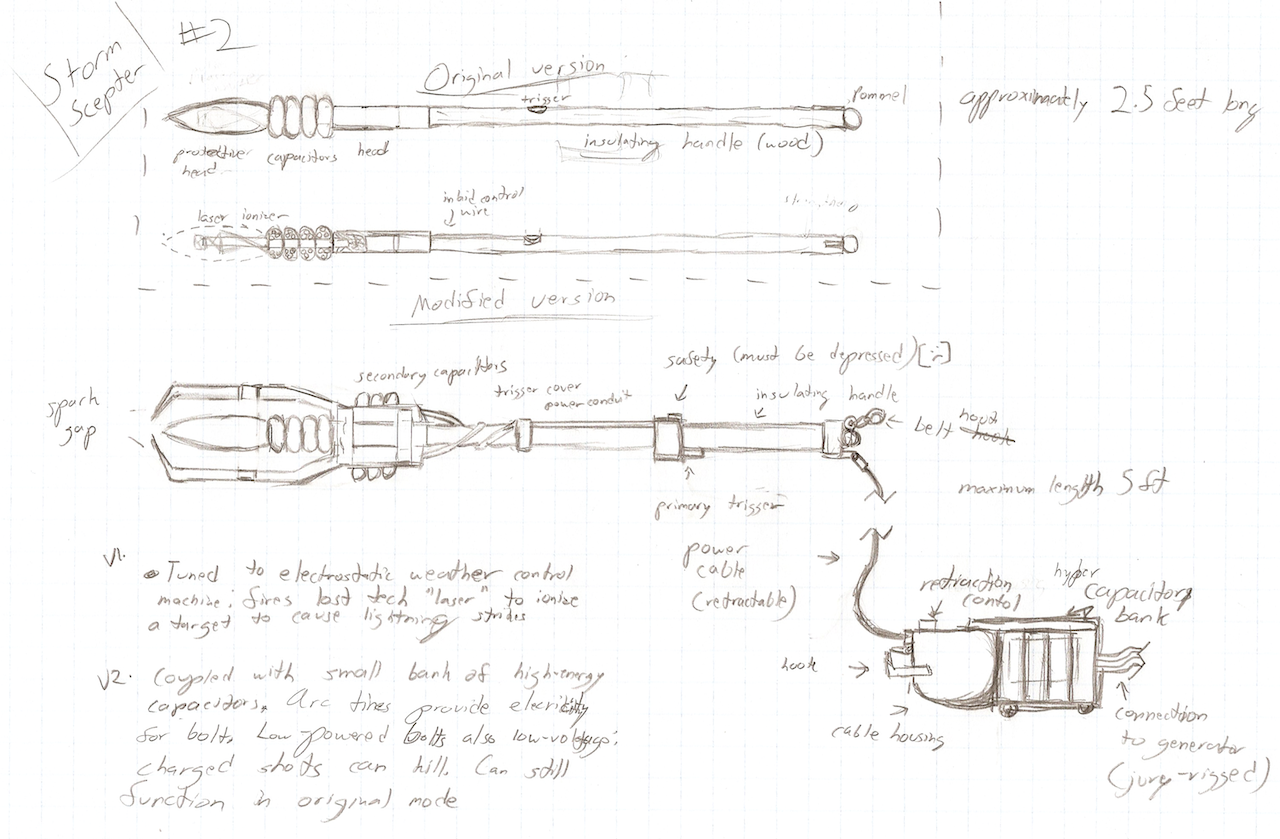 Storm
Scepter
#2
Original version
trigger
Pommel
approximately 2.5 feet long
insulating handle (wood)
protective
head
capacitors
head
laser ionizer
control
wire
Modified version
spark
gap
secondary capacitors
trigger cover
power conduit
safety (must be depressed) [:]
insulating handle
belt
hook
primary trigger
maximum length 5 ft
V1.
• Tuned to electrostatic weather control
machine; fires lost tech "laser" to ionize
a target to cause lightning strikes
V2. Coupled with small bank of high-energy
capacitors. Arc tines provide elecricity
for bolt. Low-powered bolts also low-voltage;
charged shots can kill. Can still
function in original mode
power
cable
(retractable)
retraction
contol
hyper
capacitory
bank
hook
cable housing
connection
to generator
(jury-rigged)